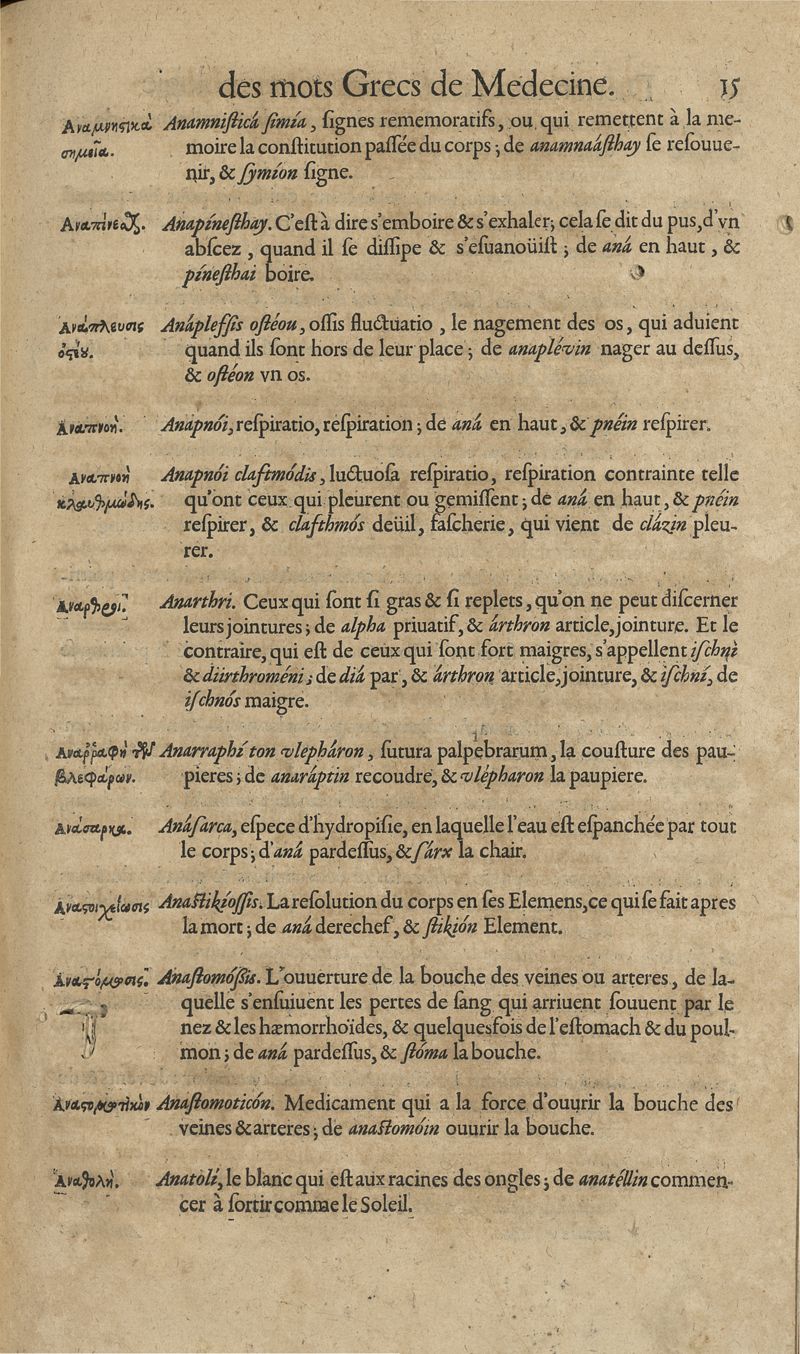 des mots Grecs de Medecine. 15
Αναμνηϛικὰ Anamnisticá simía, ſignes rememoratifs, ou qui remettent à la me-
σημεῖα. moire la conſtitution paſſée du corps; de anamnaáſthay ſe reſouue-
nir, & ſymíon ſigne.
Αναπίνεσθαι. Anapíneſthay. C'eſt à dire s'emboire & s'exhaler; cela ſe dit du pus, d'vn
abſcez, quand il ſe diſſipe & s'eſuanoüiſt; de aná en haut, &
píneſthai boire.
Ανάπλευσις Anápleſſis oſtéou, oſſis fluctuatio, le nagement des os, qui aduient
ὀϛέου. quand ils ſont hors de leur place; de anaplévin nager au deſſus,
& oſtéon vn os.
Αναπνοή. Anapnói, reſpiratio, reſpiration; de aná en haut, & pnéin reſpirer.
Αναπνοὴ Anapnói claftmódis, luctuoſa reſpiratio, reſpiration contrainte telle
κλαυθμώδης. qu'ont ceux qui pleurent ou gemiſſent; de aná en haut, & pnéin
reſpirer, & clafthmós deüil, faſcherie, qui vient de clázin pleu-
rer.
Αναρθροι. Anarthri. Ceux qui ſont ſi gras & ſi replets, qu'on ne peut diſcerner
leurs jointures; de alpha priuatif, & árthron article, jointure. Et le
contraire, qui eſt de ceux qui ſont fort maigres, s'appellent iſchnì
& diirthroméni; de diá par, & árthron article, jointure, & iſchní, de
iſchnós maigre.
Αναρῥαφὴ τῶν Anarraphí ton vlepháron, ſutura palpebrarum, la couſture des pau-
βλεφάρων. pieres; de anaráptin recoudre, & vlépharon la paupiere.
Ανάσαρκα. Anáſarca, eſpece d'hydropiſie, en laquelle l'eau eſt eſpanchée par tout
le corps; d'aná pardeſſus, & ſárx la chair.
Αναϛοιχείωσις Anaſtikíoſſis. La reſolution du corps en ſes Elemens, ce qui ſe fait apres
la mort; de aná derechef, & ſtikión Element.
Αναϛόμωσις. Anaſtomóſſis. L'ouuerture de la bouche des veines ou arteres, de la-
quelle s'enſuiuent les pertes de ſang qui arriuent ſouuent par le
nez & les hæmorrhoïdes, & quelquesfois de l'eſtomach & du poul-
mon; de aná pardeſſus, & ſtóma la bouche.
Αναϛομωτικὸν Anaſtomoticón. Medicament qui a la force d'ouurir la bouche des
veines & arteres; de anaſtomóin ouurir la bouche.
Ανατολή. Anatolí, le blanc qui eſt aux racines des ongles; de anatéllin commen-
cer à ſortir comme le Soleil.